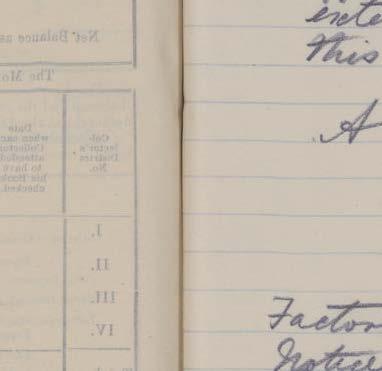 Net Balance as
The Mo
Col-
lector's
District
No.
Date
when each
Collector
attended
to have
his Book
checked.
I.
II.
III.
IV.
this
A
Factor
Notice